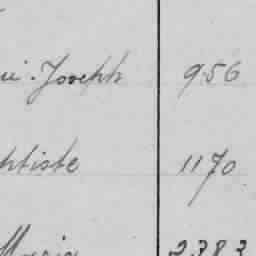 ui Joseph 956
ptiste 1170
Maria 2383